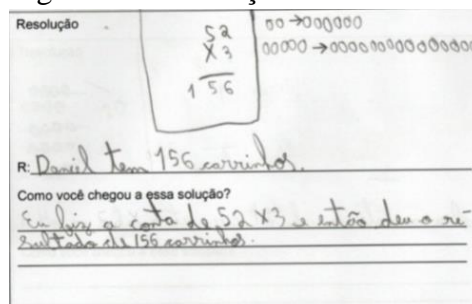 Resolução
52
X 3
156
oo → oooooo
ooooo → ooooooooooooooo
R: Daniel tem 156 carrinhos.
Como você chegou a essa solução?
Eu fiz a conta de 52 X 3 e então deu o re-
sultado de 156 carrinhos.